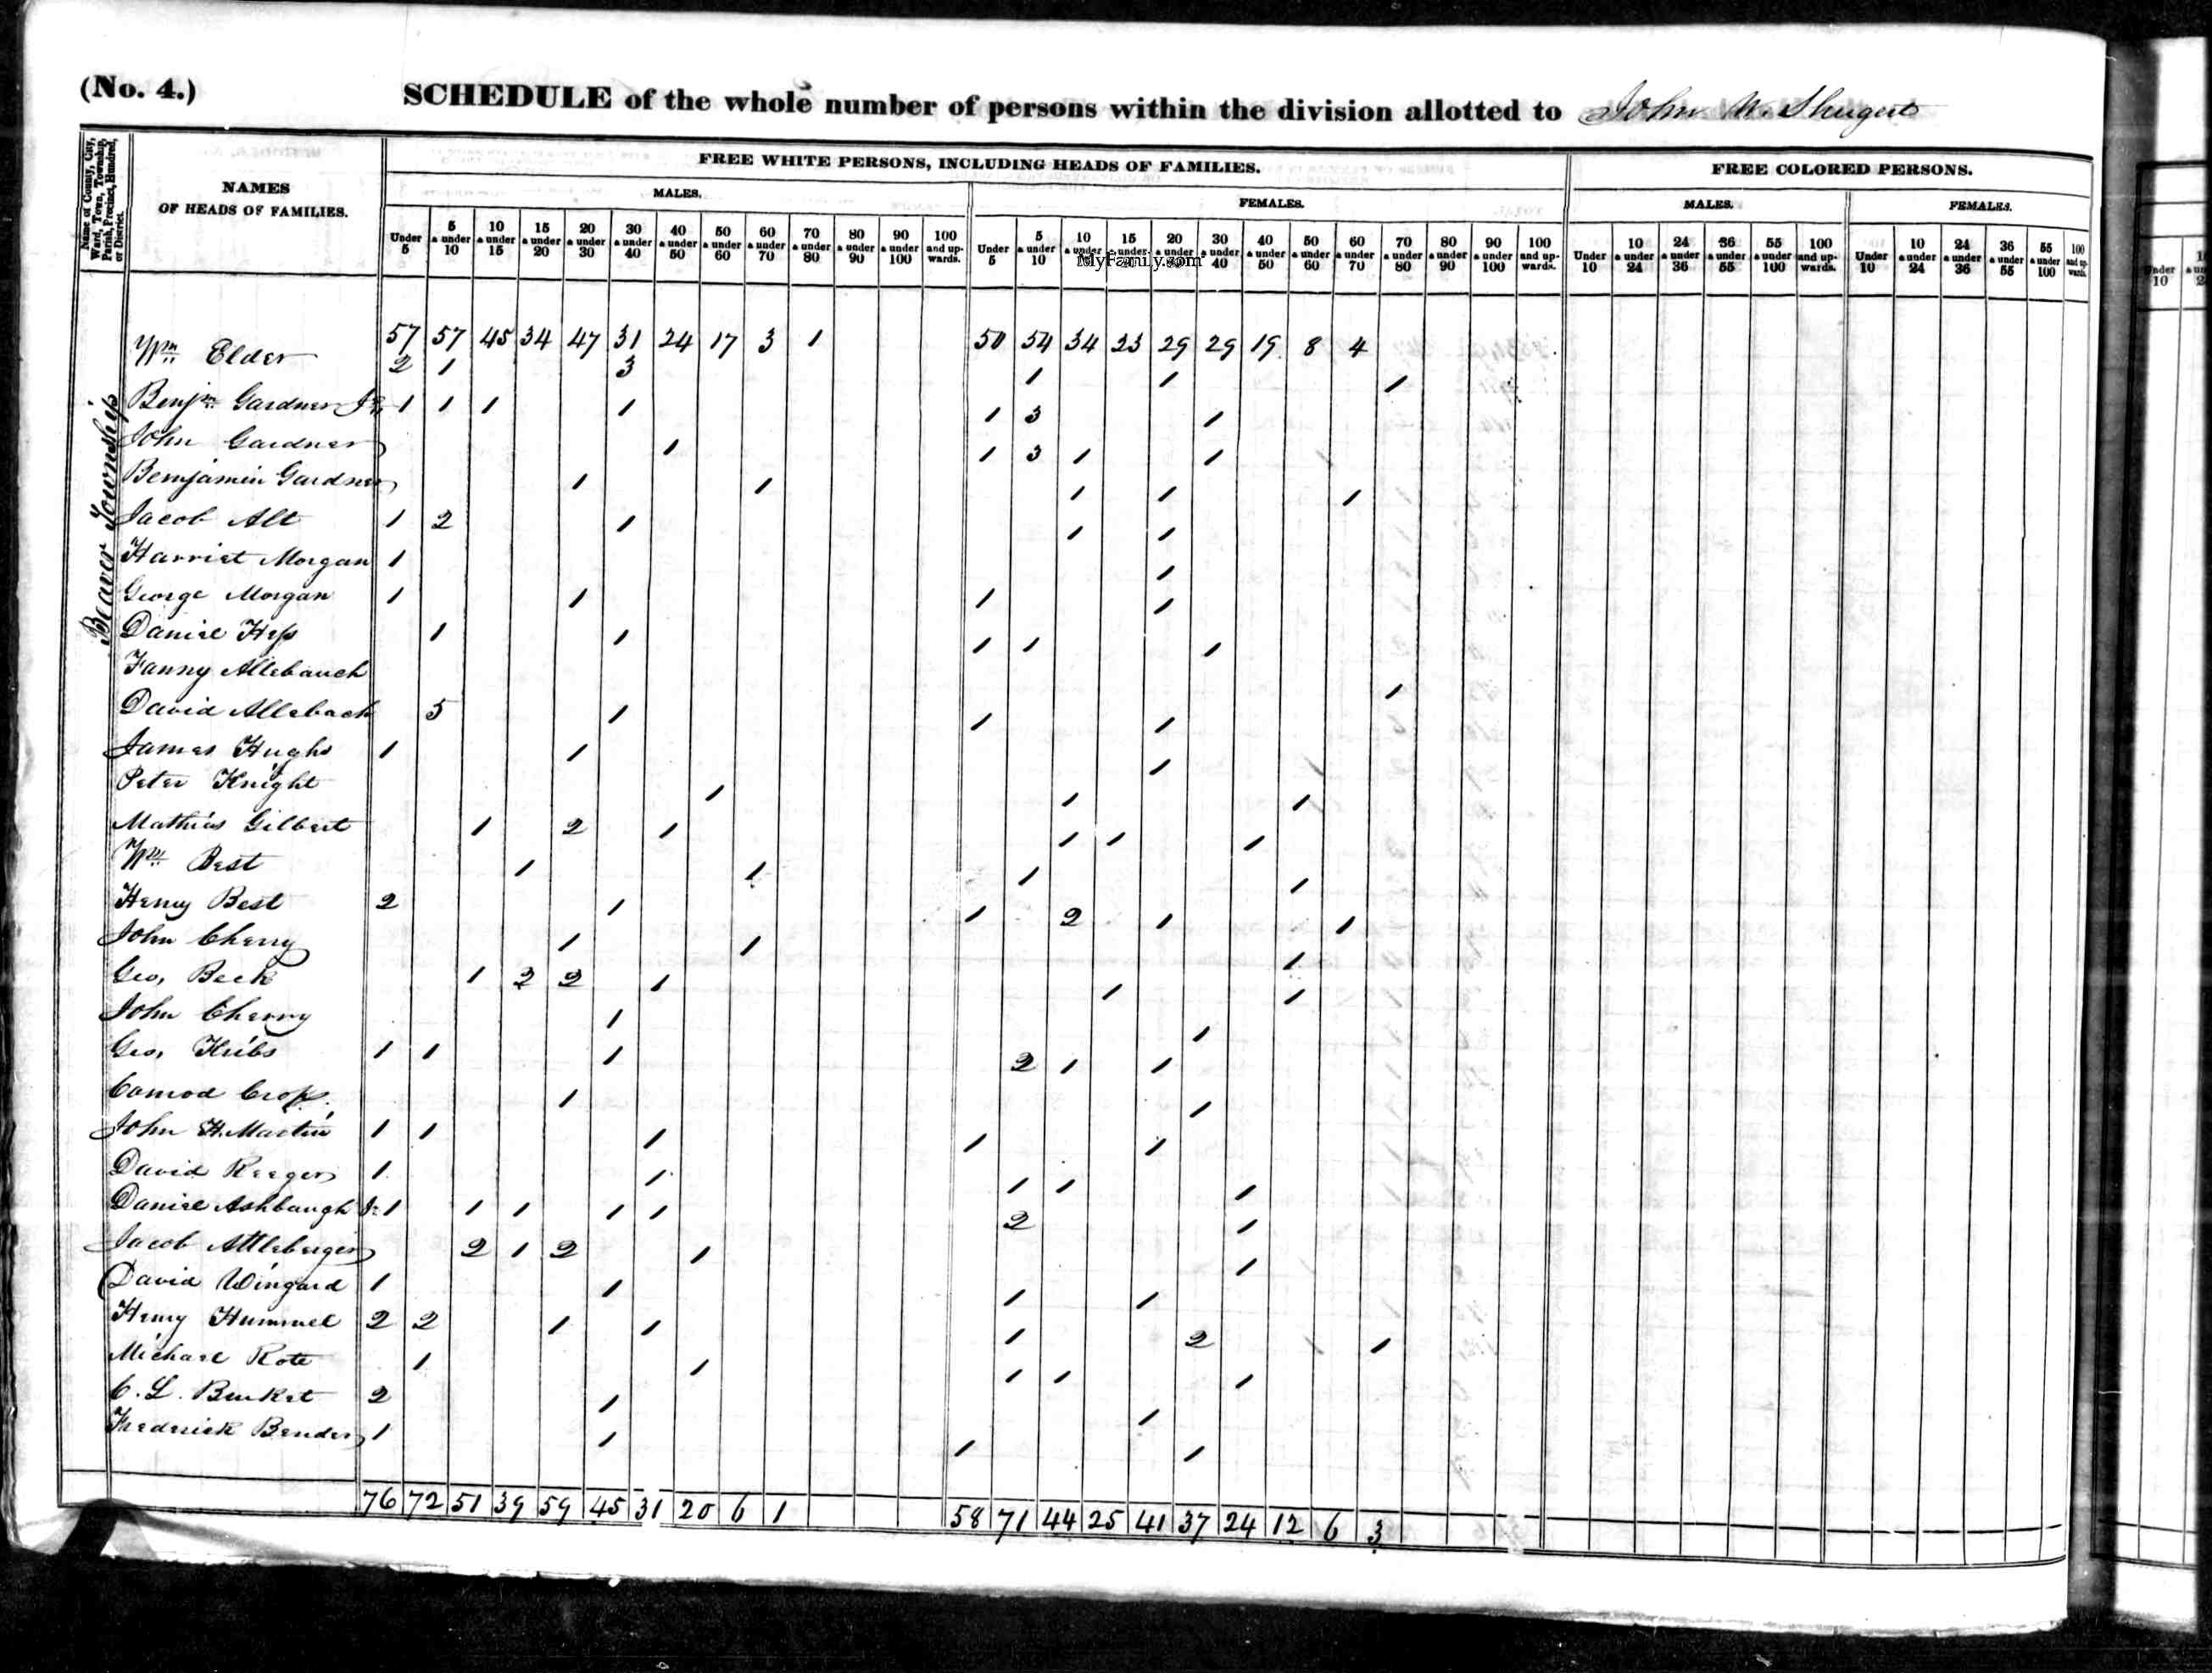 (No. 4.)
SCHEDULE of the whole number of persons within the division allotted to John W. Shugert
Name of County, City, Ward, Town, Township, Parish, Precinct, Hundred, or District.
NAMES OF HEADS OF FAMILIES.
FREE WHITE PERSONS, INCLUDING HEADS OF FAMILIES.
FREE COLORED PERSONS.
MALES. FEMALES. MALES. FEMALES.
Under 5 | 5 & under 10 | 10 & under 15 | 15 & under 20 | 20 & under 30 | 30 & under 40 | 40 & under 50 | 50 & under 60 | 60 & under 70 | 70 & under 80 | 80 & under 90 | 90 & under 100 | 100 and upwards. | Under 5 | 5 & under 10 | 10 & under 15 | 15 & under 20 | 20 & under 30 | 30 & under 40 | 40 & under 50 | 50 & under 60 | 60 & under 70 | 70 & under 80 | 80 & under 90 | 90 & under 100 | 100 and upwards. | Under 10 | 10 & under 24 | 24 & under 36 | 36 & under 55 | 55 & under 100 | 100 and upwards. | Under 10 | 10 & under 24 | 24 & under 36 | 36 & under 55 | 55 & under 100 | 100 and upwards.
MyFamily.com
Beaver Township
57 57 45 34 47 31 24 17 3 1 50 54 34 23 29 29 19 8 4
Wm Elder 2 1 3 1 1 1
Benjm Gardner Jr 1 1 1 1 1 3 1
John Gardner 1 1 3 1 1
Bemjamin Gardner 1 1 1 1 1
Jacob Alt 1 2 1 1 1
Harriet Morgan 1 1
George Morgan 1 1 1 1
Daniel Hess 1 1 1 1 1
Fanny Allebauch 1
David Allebach 5 1 1 1
James Hughs 1 1 1
Peter Knight 1 1 1
Mathias Gilbert 1 2 1 1 1 1
Wm Best 1 1 1 1
Henry Best 2 1 1 2 1 1
John Cherry 1 1 1
Geo, Beck 1 2 2 1 1 1
John Cherry 1 1
Geo, Kribs 1 1 1 2 1 1
Conrod 1 1
John H. Martin 1 1 1 1 1
David Reeger 1 1 1 1 1
Daniel Ashbaugh Jr 1 1 1 1 1 2 1
Jacob Attleberger 2 1 2 1 1
David Wingard 1 1 1 1
Henry Hummel 2 2 1 1 1 2 1
Michael Rote 1 1 1 1 1
C. L. Burket 2 1 1
Frederick Bender 1 1 1 1
76 72 51 39 59 45 31 20 6 1 58 71 44 25 41 37 24 12 6 3
Under 10